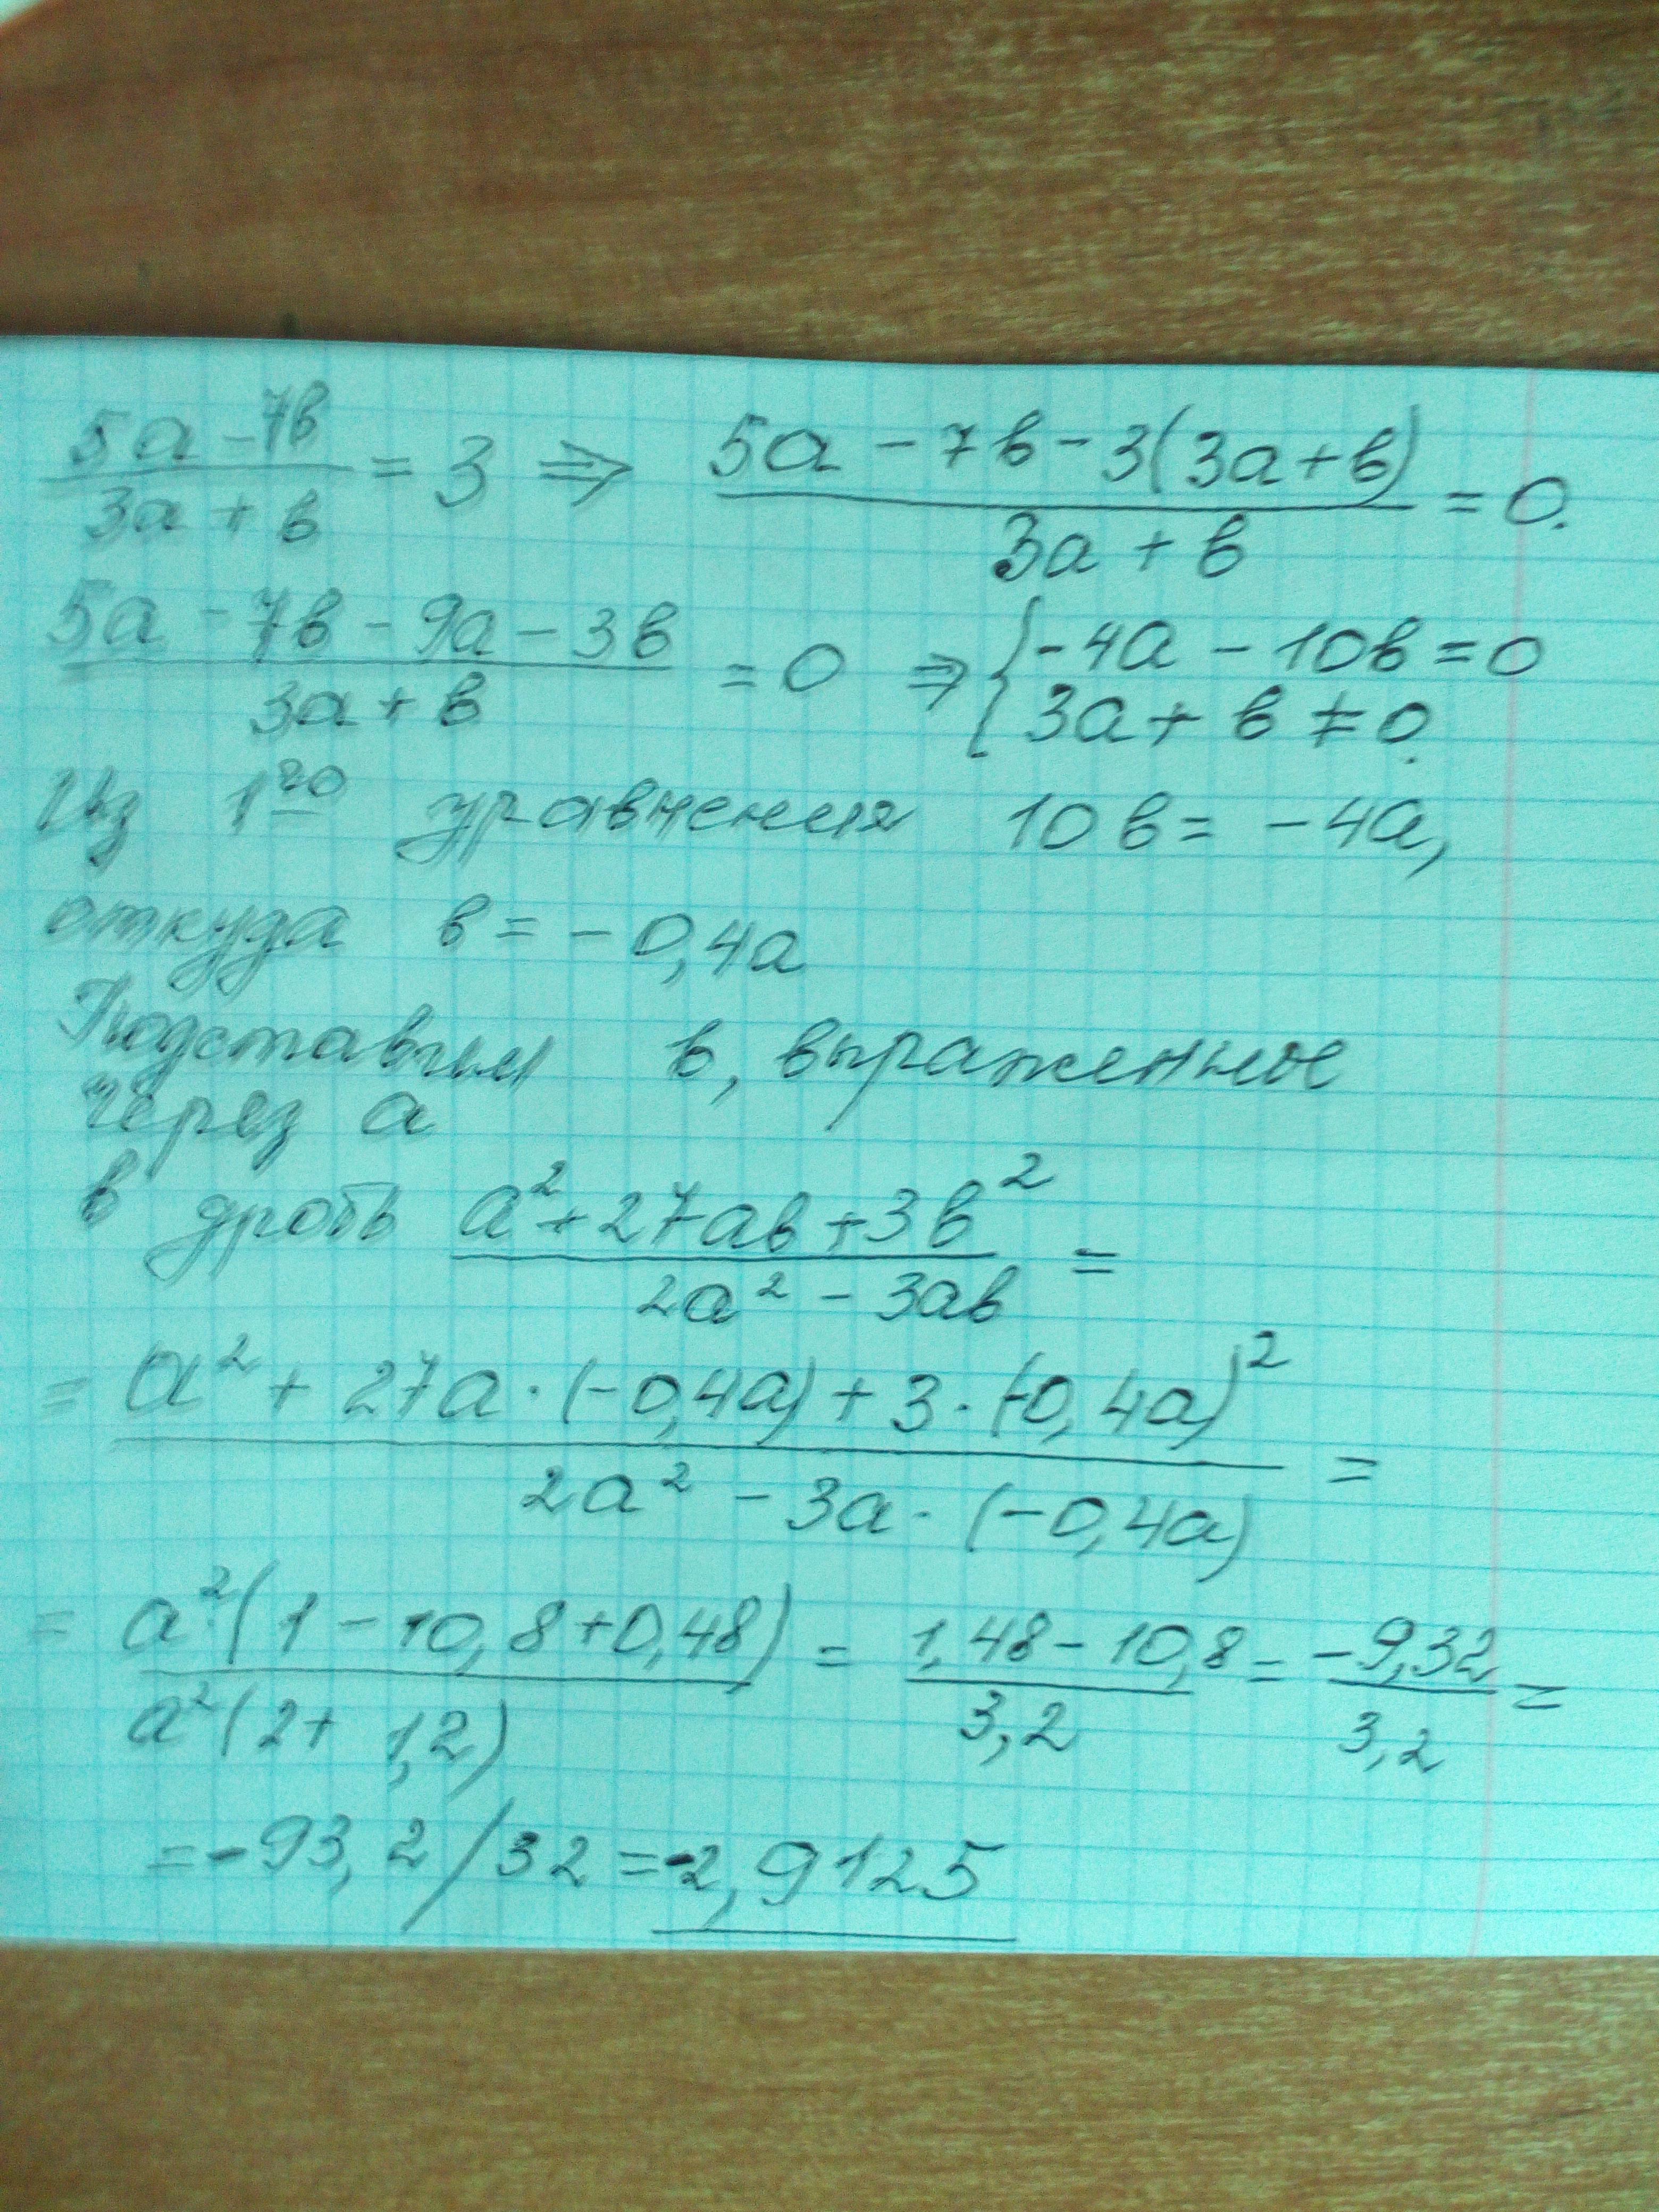 (5a - 7в)/(3a + в) = 3 ⇒ (5a - 7в - 3(3a + в))/(3a + в) = 0.
(5a - 7в - 9a - 3в)/(3a + в) = 0 ⇒ { -4a - 10в = 0
3a + в ≠ 0.
Из 1го уравнения 10в = -4a,
откуда в = -0,4a
Подставим в, выраженное
через a
в дробь (a² + 27aв + 3в²)/(2a² - 3aв) =
= (a² + 27a · (-0,4a) + 3 · (-0,4a)²)/(2a² - 3a · (-0,4a)) =
= (a²(1 - 10,8 + 0,48))/(a²(2 + 1,2)) = (1,48 - 10,8)/(3,2) = (-9,32)/(3,2) =
= -93,2/32 = -2,9125